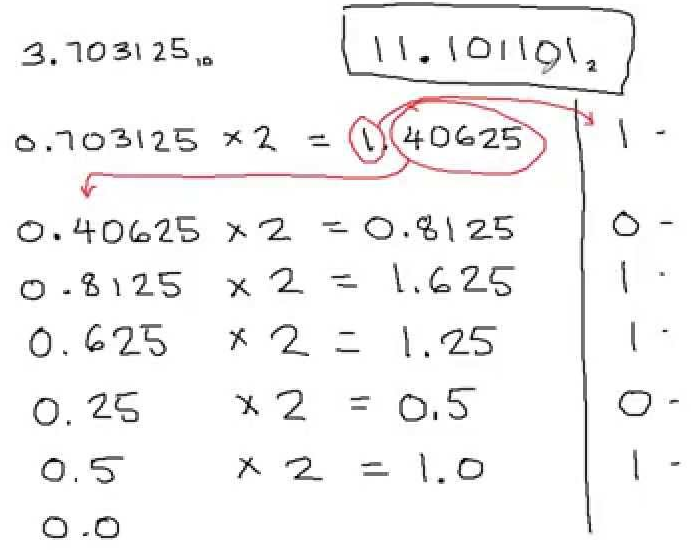 3.703125₁₀ 11.101101₂
0.703125 × 2 = 1.40625 | 1 -
0.40625 × 2 = 0.8125 | 0 -
0.8125 × 2 = 1.625 | 1 -
0.625 × 2 = 1.25 | 1 -
0.25 × 2 = 0.5 | 0 -
0.5 × 2 = 1.0 | 1 -
0.0